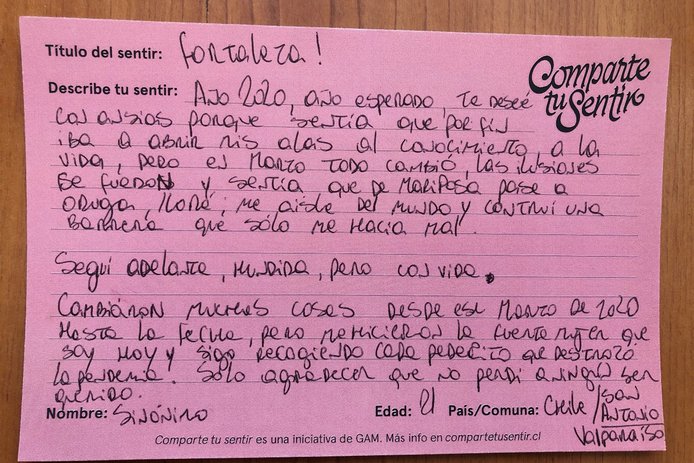 Título del sentir: fortaleza!
Comparte tu Sentir
Describe tu sentir: Año 2020, año esperado, te deseé
con ansias porque sentía que por fin
iba a abrir mis alas al conocimiento, a la
vida, pero en Marzo todo cambió, las ilusiones
se fueron y sentía que de mariposa pase a
oruga, lloré; me aisle del mundo y contruí una
barrera que sólo me hacia mal.
Seguí adelante, hundida, pero con vida.
Cambiaron muchas cosas desde ese Marzo de 2020
hasta la fecha, pero me hicieron la fuerte mujer que
soy hoy y sigo recogiendo cada pedacito que destrozó
la pandemia. Sólo agradecer que no perdi a ningún ser
querido.
Nombre: Sinónimo Edad: 21 País/Comuna: Chile / San
Antonio
Valparaíso
Comparte tu sentir es una iniciativa de GAM. Más info en compartetusentir.cl